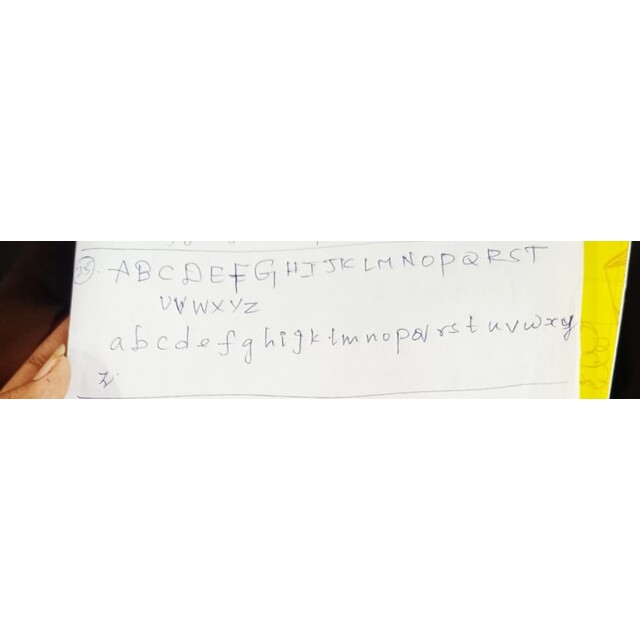 A B C D E F G H I J K L M N O P Q R S T
U V W X Y Z
a b c d e f g h i j k l m n o p q r s t u v w x y
z.